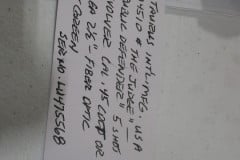 TAURUS INT'L MFG. U.S.A
4510 # THE JUDGE" 
PUBLIC DEFENDER" 5 SHOT
REVOLVER CAL .45 COLT OR
GA 2½" FIBER OPTIC
GREEN
SER NO